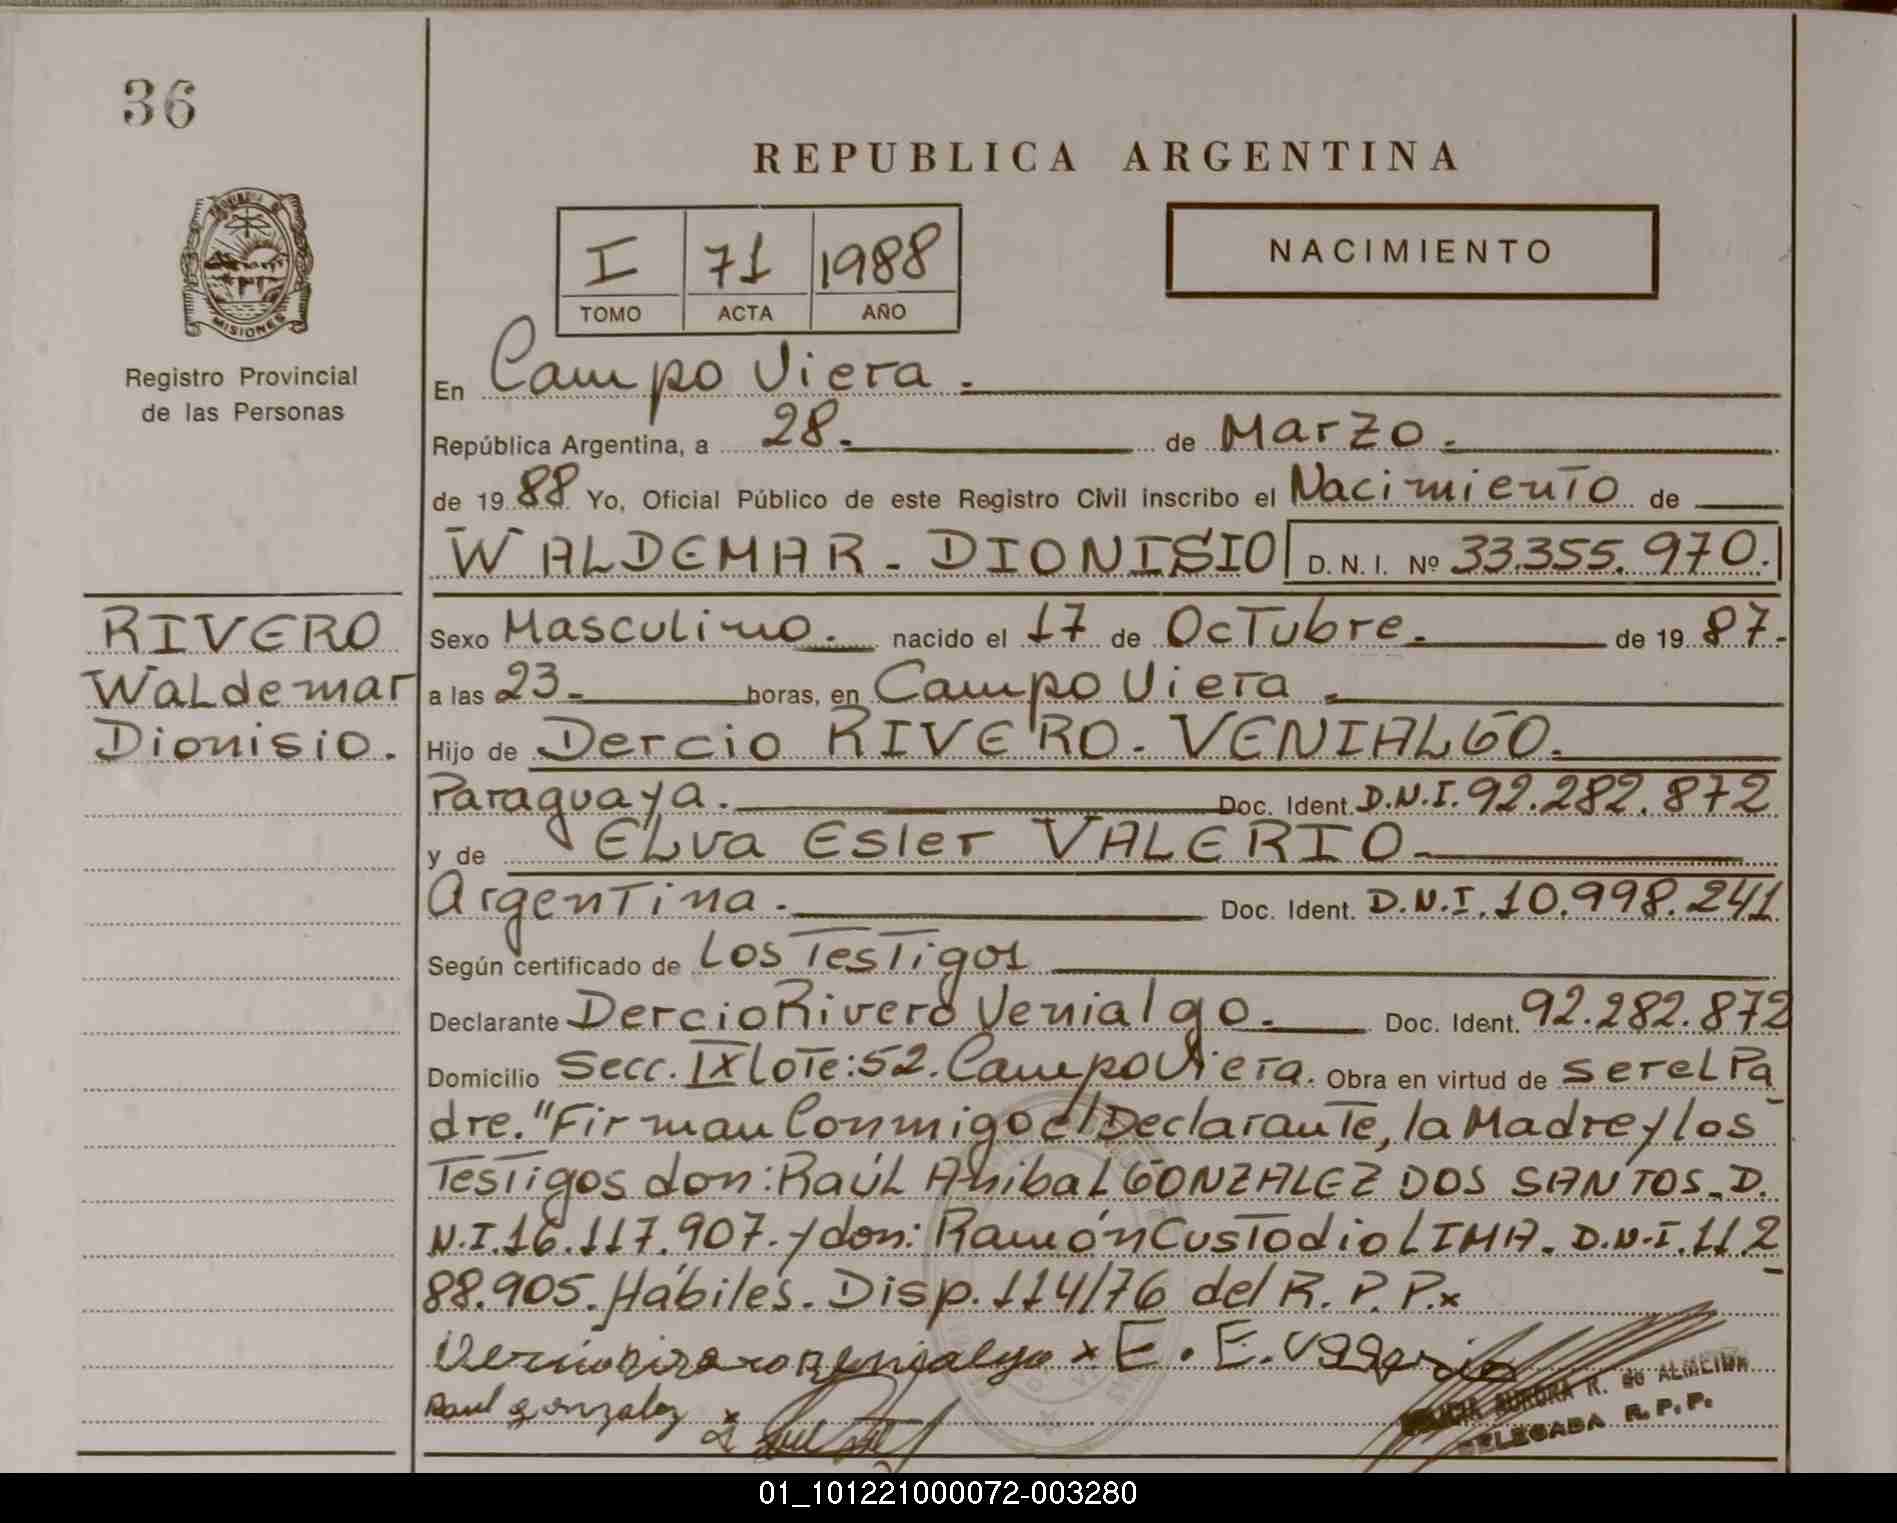 36
REPUBLICA ARGENTINA
I 71 1988
TOMO ACTA AÑO
NACIMIENTO
MISIONES
Registro Provincial
de las Personas
En Campo Viera.
República Argentina, a 28. de Marzo.
de 19 88 Yo, Oficial Público de este Registro Civil inscribo el Nacimiento de
WALDEMAR - DIONISIO D. N. I. Nº 33.355.970.
RIVERO
Waldemar
Dionisio.
Sexo Masculino. nacido el 17 de Octubre. de 19 87.
a las 23. horas, en Campo Viera.
Hijo de Dercio RIVERO - VENIALGO.
Paraguaya. Doc. Ident. D.N.I. 92.282.872
y de Elva Esler VALERIO
Argentina. Doc. Ident. D.N.I. 10.998.241
Según certificado de Los Testigos
Declarante Dercio Rivero Venialgo. Doc. Ident. 92.282.872
Domicilio Secc. IX Lote: 52. Campo Viera. Obra en virtud de ser el Pa
dre. "Firman Conmigo el Declarante, la Madre y los
Testigos don: Raúl Anibal GONZALEZ DOS SANTOS - D.
N.I. 16.117.907. y don: Ramón Custodio LIMA. D.N.I. 11.2
88.905. Hábiles. Disp. 114/76 del R. P. P. x
x E. E. Valerio
Raul gonzalez x
AURORA R. de ALMEIDA
DELEGADA R. P. P.
01_101221000072-003280